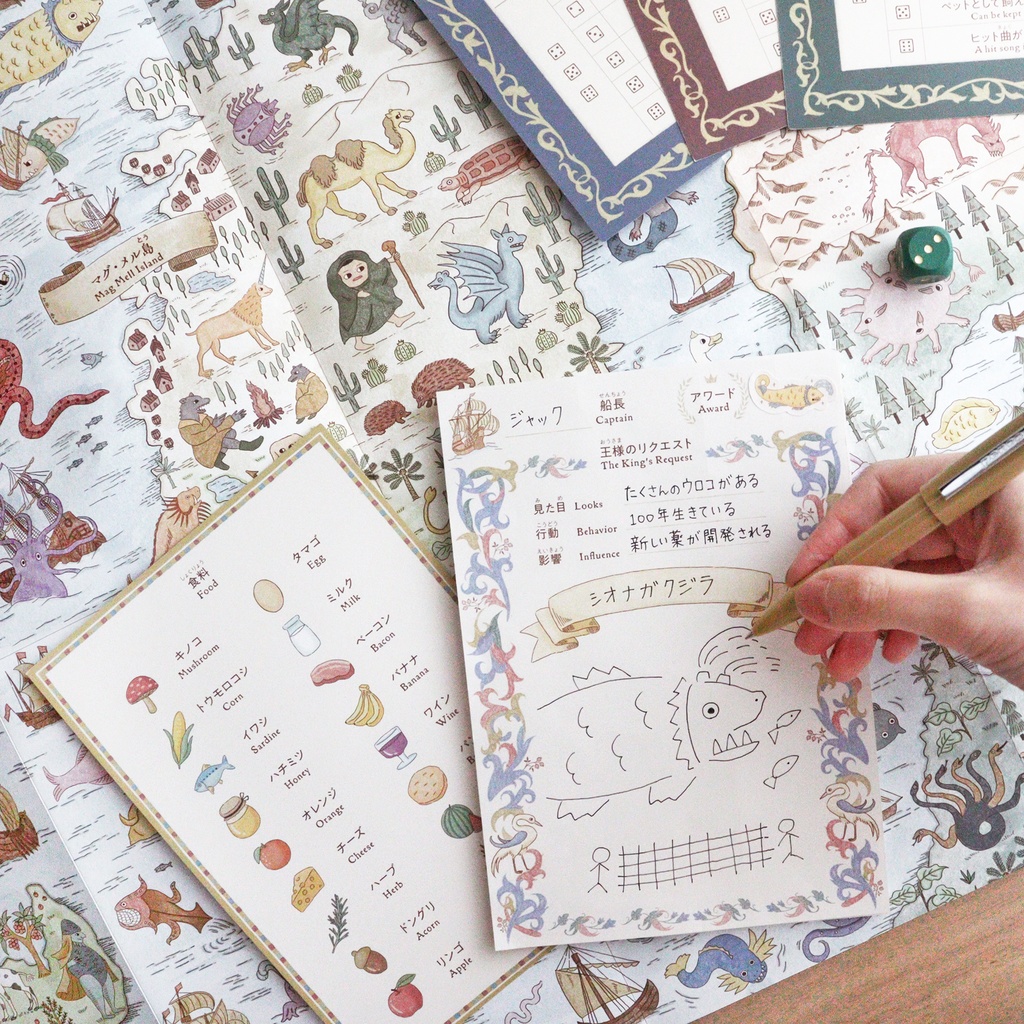 ペットとして飼え
Can be kept
ヒット曲が
A hit song
とう
マグ・メル島
Mag Mell Island
ジャック
せんちょう
船長
Captain
アワード
Award
おうさま
王様のリクエスト
The King's Request
み め
見た目 Looks たくさんのウロコがある
こうどう
行動 Behavior 100年生きている
えいきょう
影響 Influence 新しい薬が開発される
シオナガクジラ
しょくりょう
食料
Food
キノコ
Mushroom
トウモロコシ
Corn
イワシ
Sardine
ハチミツ
Honey
オレンジ
Orange
チーズ
Cheese
ハーブ
Herb
ドングリ
Acorn
リンゴ
Apple
タマゴ
Egg
ミルク
Milk
ベーコン
Bacon
バナナ
Banana
ワイン
Wine